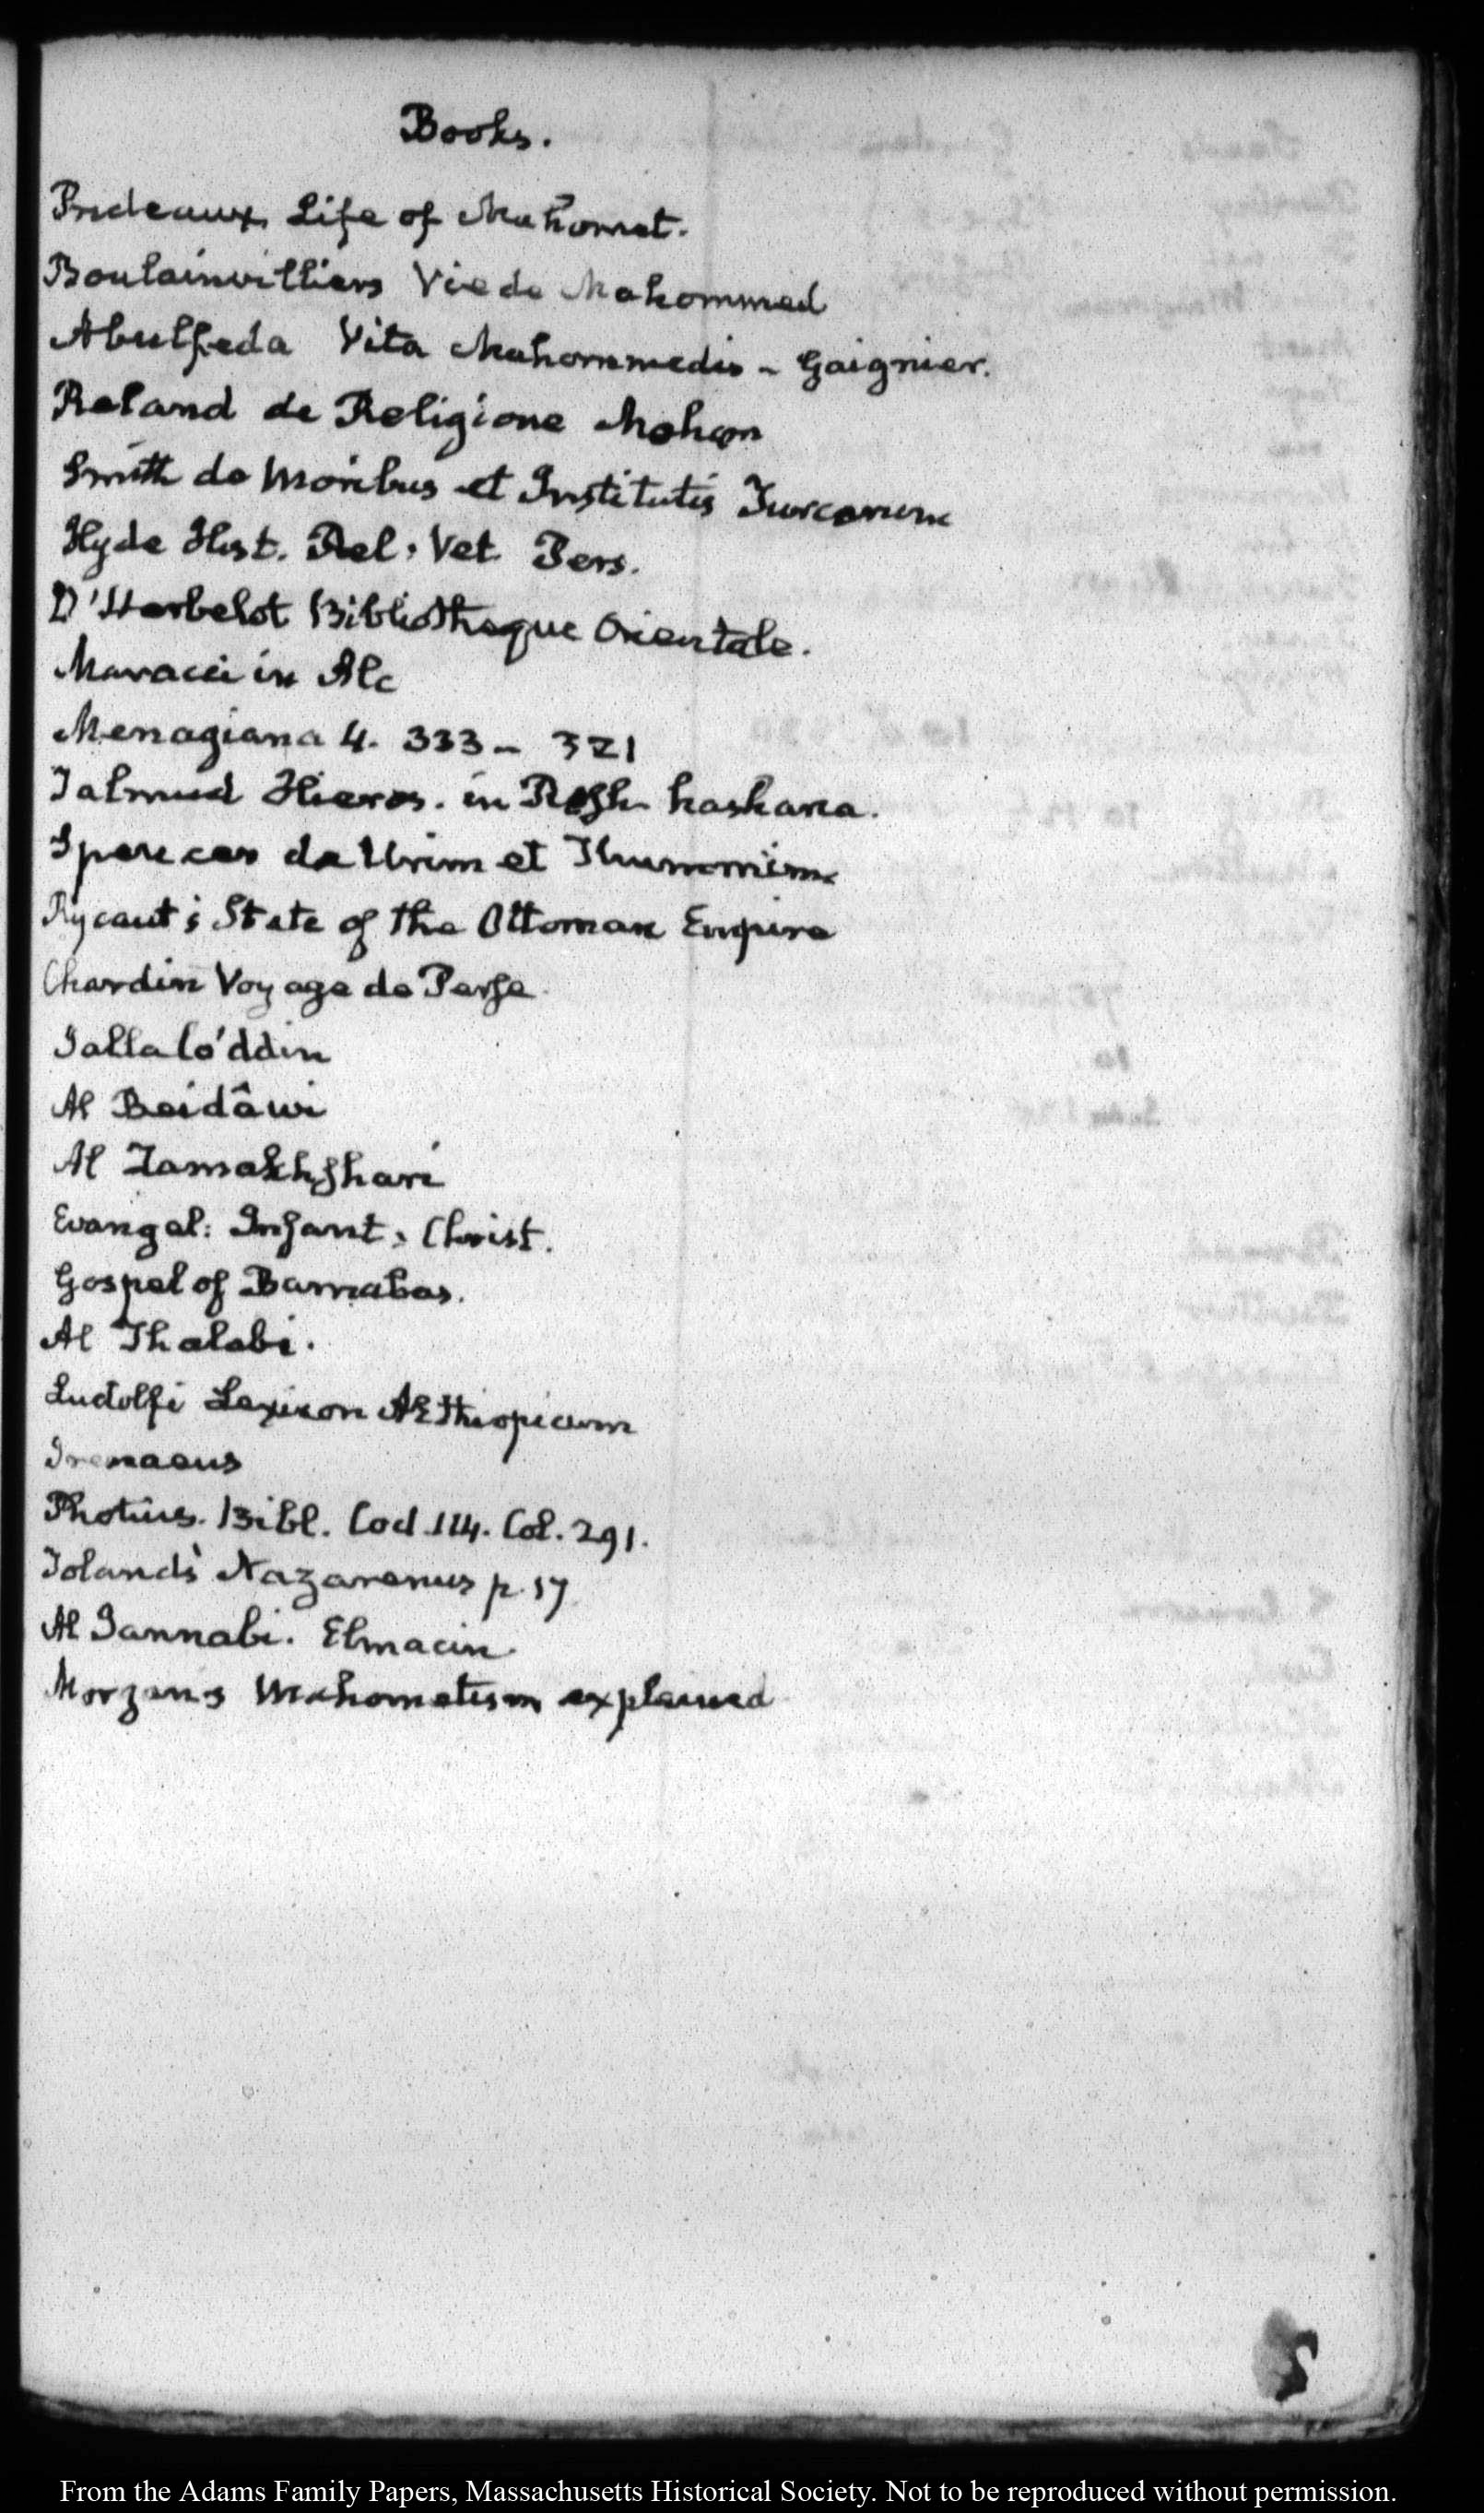 Books.
Prideaux Life of Mahomet.
Boulainvilliers Vie de Mahommed
Abulfeda Vita Mahommedis - Gaignier.
Reland de Religione Moham
Smith de Moribus et Institutis Turcarum
Hyde Hist. Rel. Vet. Pers.
D'Herbelot Bibliotheque Orientale.
Maracci in Alc
Menagiana 4. 333 - 321
Talmud Hieros. in Rosh hashana.
Spencer de Urim et Thummim
Rycaut's State of the Ottoman Empire
Chardin Voyage de Perse
Jallalo'ddin
Al Beidâwi
Al Zamakhshari
Evangel: Infant, Christ.
Gospel of Barnabas.
Al Thalabi.
Ludolfi Lexicon AEthiopicum
Irenaeus
Photius. Bibl. Cod. 114. Col. 291.
Toland's Nazarenus p. 17
Al Jannabi. Elmacin.
Morgan's Mahometism explained
From the Adams Family Papers, Massachusetts Historical Society. Not to be reproduced without permission.